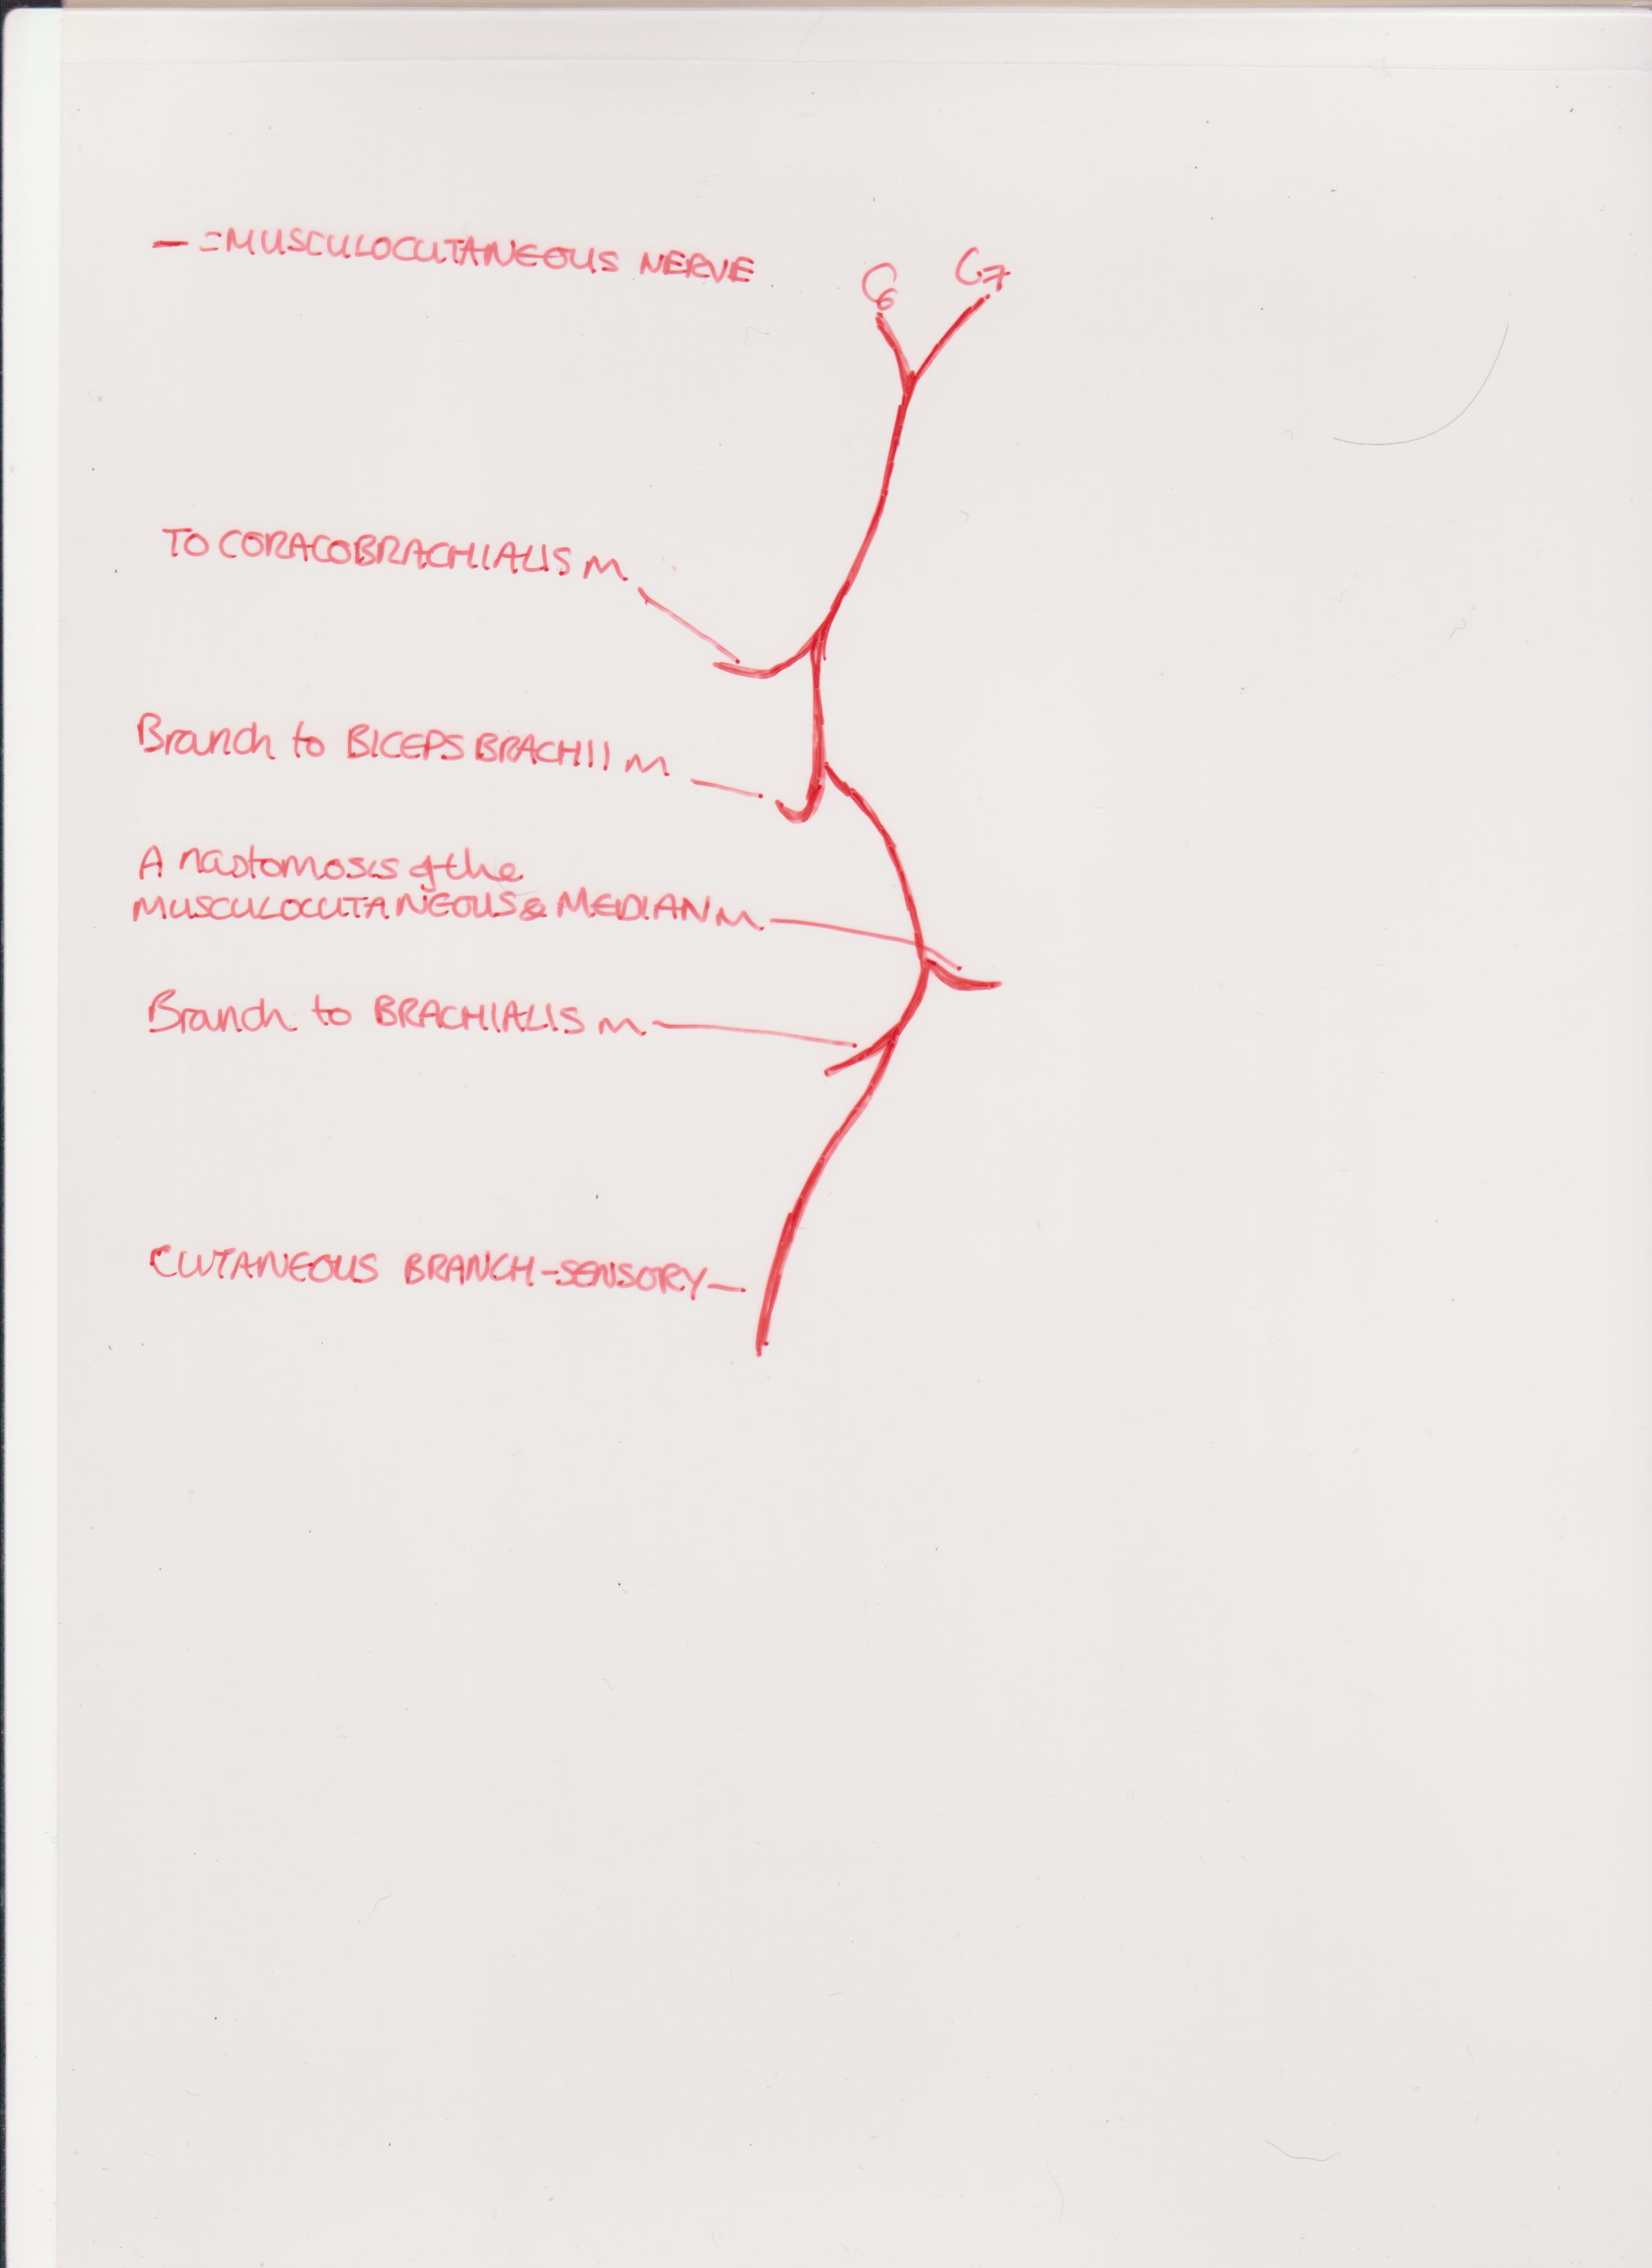 — = MUSCULOCUTANEOUS NERVE
C6 C7
TO CORACOBRACHIALIS M.
Branch to BICEPS BRACHII M
Anastomosis of the
MUSCULOCUTANEOUS & MEDIAN M.
Branch to BRACHIALIS M.
CUTANEOUS BRANCH-SENSORY